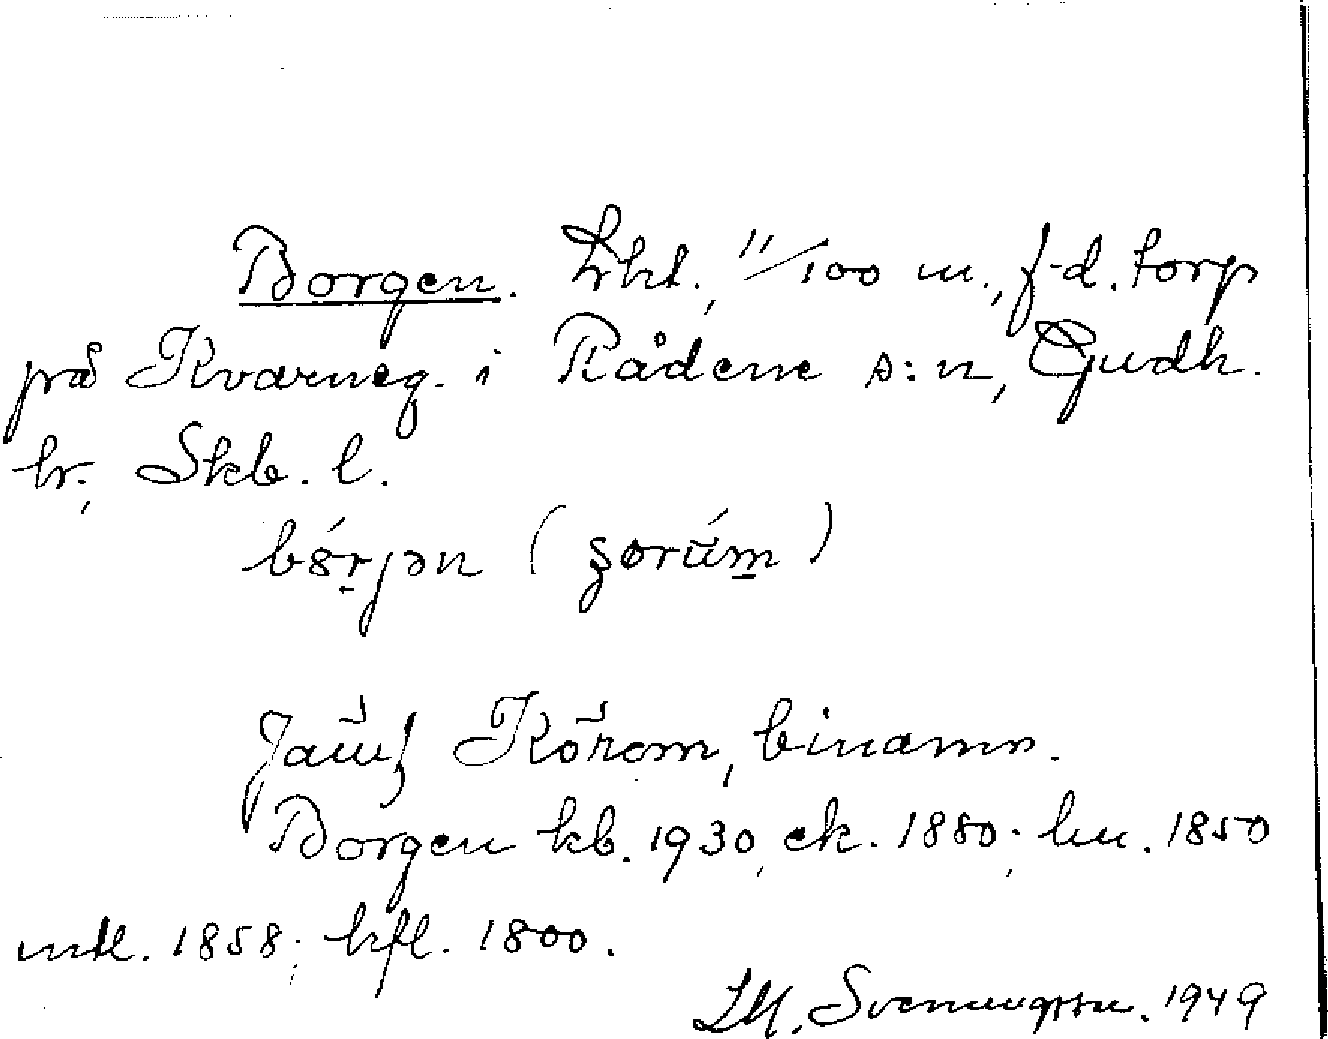 Borgen. Lht., 11/100 m., f.d. torp
på Kvarneg. i Rådene s:n, Gudh.
hr., Skb. l.
bórjən (
Jämf Körom, binamn.
Borgen kb. 1930, ek. 1880; hu. 1850
mtl. 1858; hfl. 1800.
Svenungsson. 1949